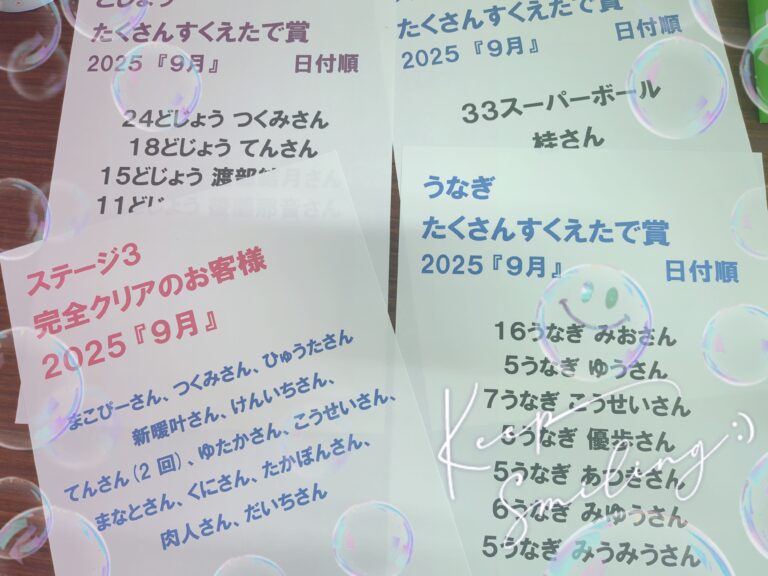 どじょう
たくさんすくえたで賞
2025『9月』 日付順
24どじょう つくみさん
18どじょう てんさん
15どじょう 渡部
11どじ
たくさんすくえたで賞
2025『9月』 日付順
33スーパーボール
桂さん
ステージ3
完全クリアのお客様
2025『9月』
まこぴーさん、つくみさん、ひゅうたさん
新暖叶さん、けんいちさん、
てんさん(2 回)、ゆたかさん、こうせいさん、
まなとさん、くにさん、たかぽんさん、
肉人さん、だいちさん
うなぎ
たくさんすくえたで賞
2025『9月』 日付順
16うなぎ みおさん
5うなぎ ゆうさん
7うなぎ こうせいさん
5うなぎ 優歩さん
5うなぎ あつささん
6うなぎ みゆうさん
5うなぎ みうみうさん
Keep
Smiling :)